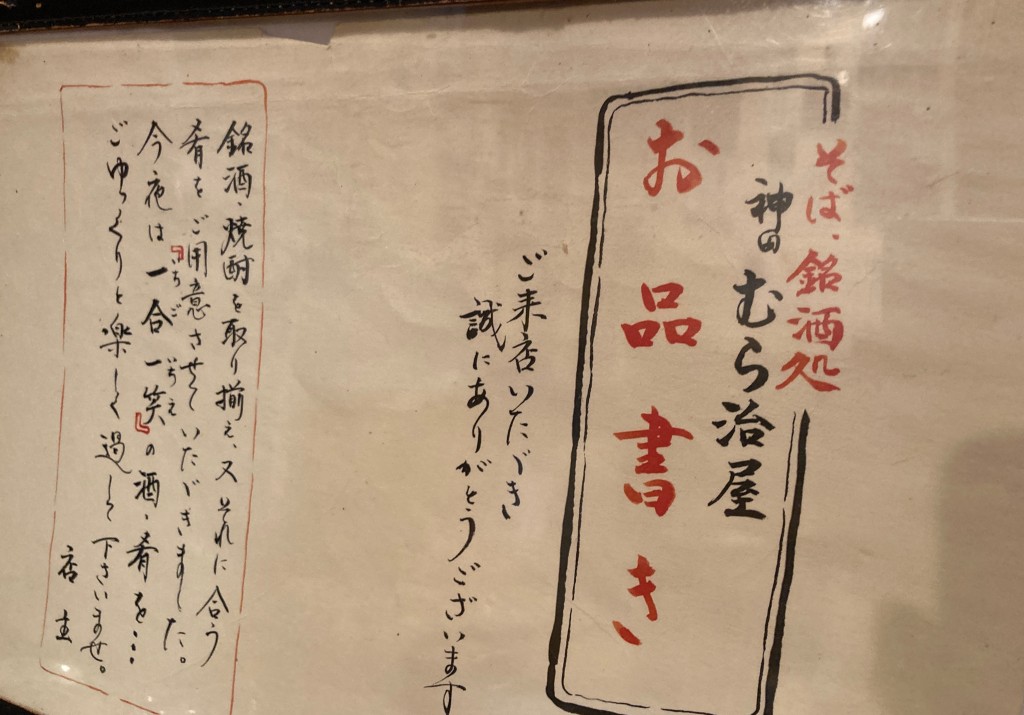 そば、銘酒処
神田 むら治屋
お品書き
ご来店いたゞき
誠にありがとうございます
銘酒、焼酎を取り揃え、又それに合う
肴をご用意させていたゞきました。
今夜は『一合一笑』の酒、肴を…
いちごいちえ
ごゆっくりと楽しく過して下さいませ。
店主